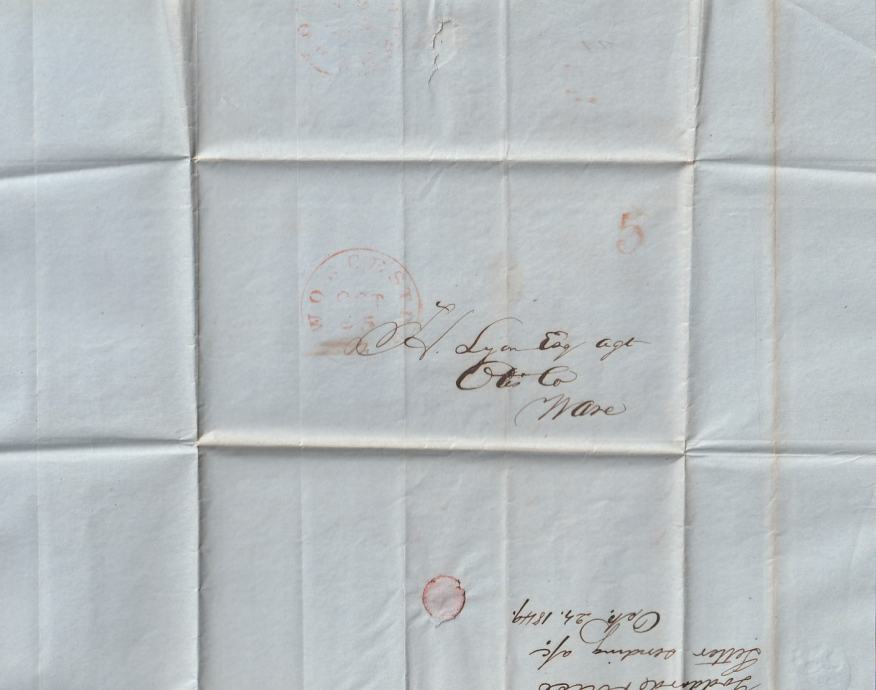 5
WORCESTE
OCT
25
H. Lyon Esq agt
Otis Co
Ware
Letter sending a/c
Oct. 24. 1849.